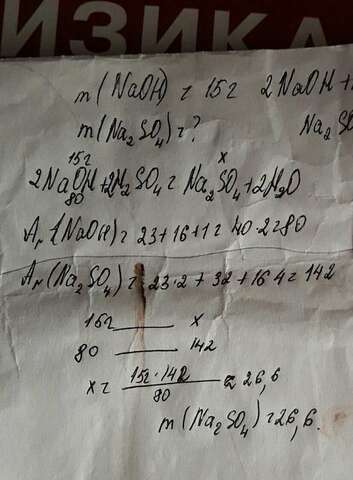 ИЗИКА
m(NaOH) = 15г 2NaOH+
m(Na₂SO₄) = ? Na₂SO
15г x
2NaOH+2H₂SO₄ = Na₂SO₄+2H₂O
80
Ar(NaOH) = 23+16+1 = 40·2=80
Ar(Na₂SO₄) = 23·2+32+16·4=142
15г x
80 142
x = 15г·142 / 80 ≈ 26,6
m(Na₂SO₄) = 26,6.